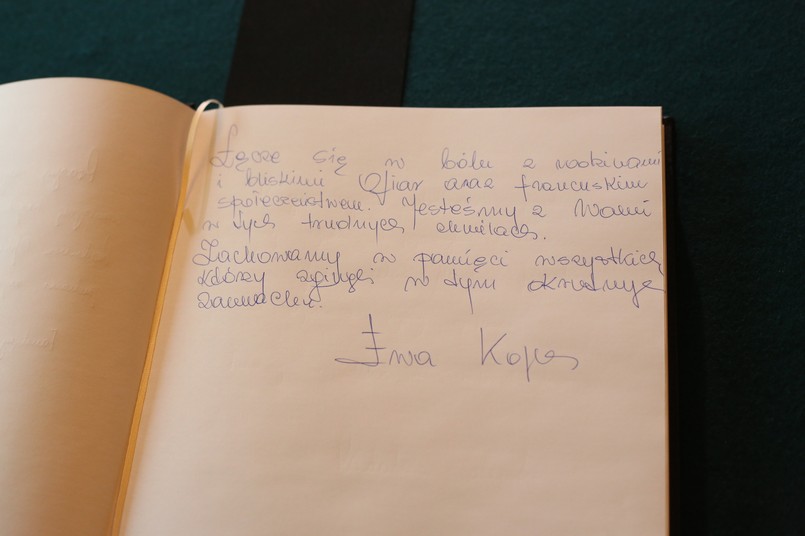 Łączę się w bólu z rodzinami
i bliskimi Ofiar oraz francuskim
społeczeństwem. Jesteśmy z Wami
w tych trudnych chwilach.
Zachowamy w pamięci wszystkich,
którzy zginęli w tym okrutnym
zamachu.
Ewa Kopacz